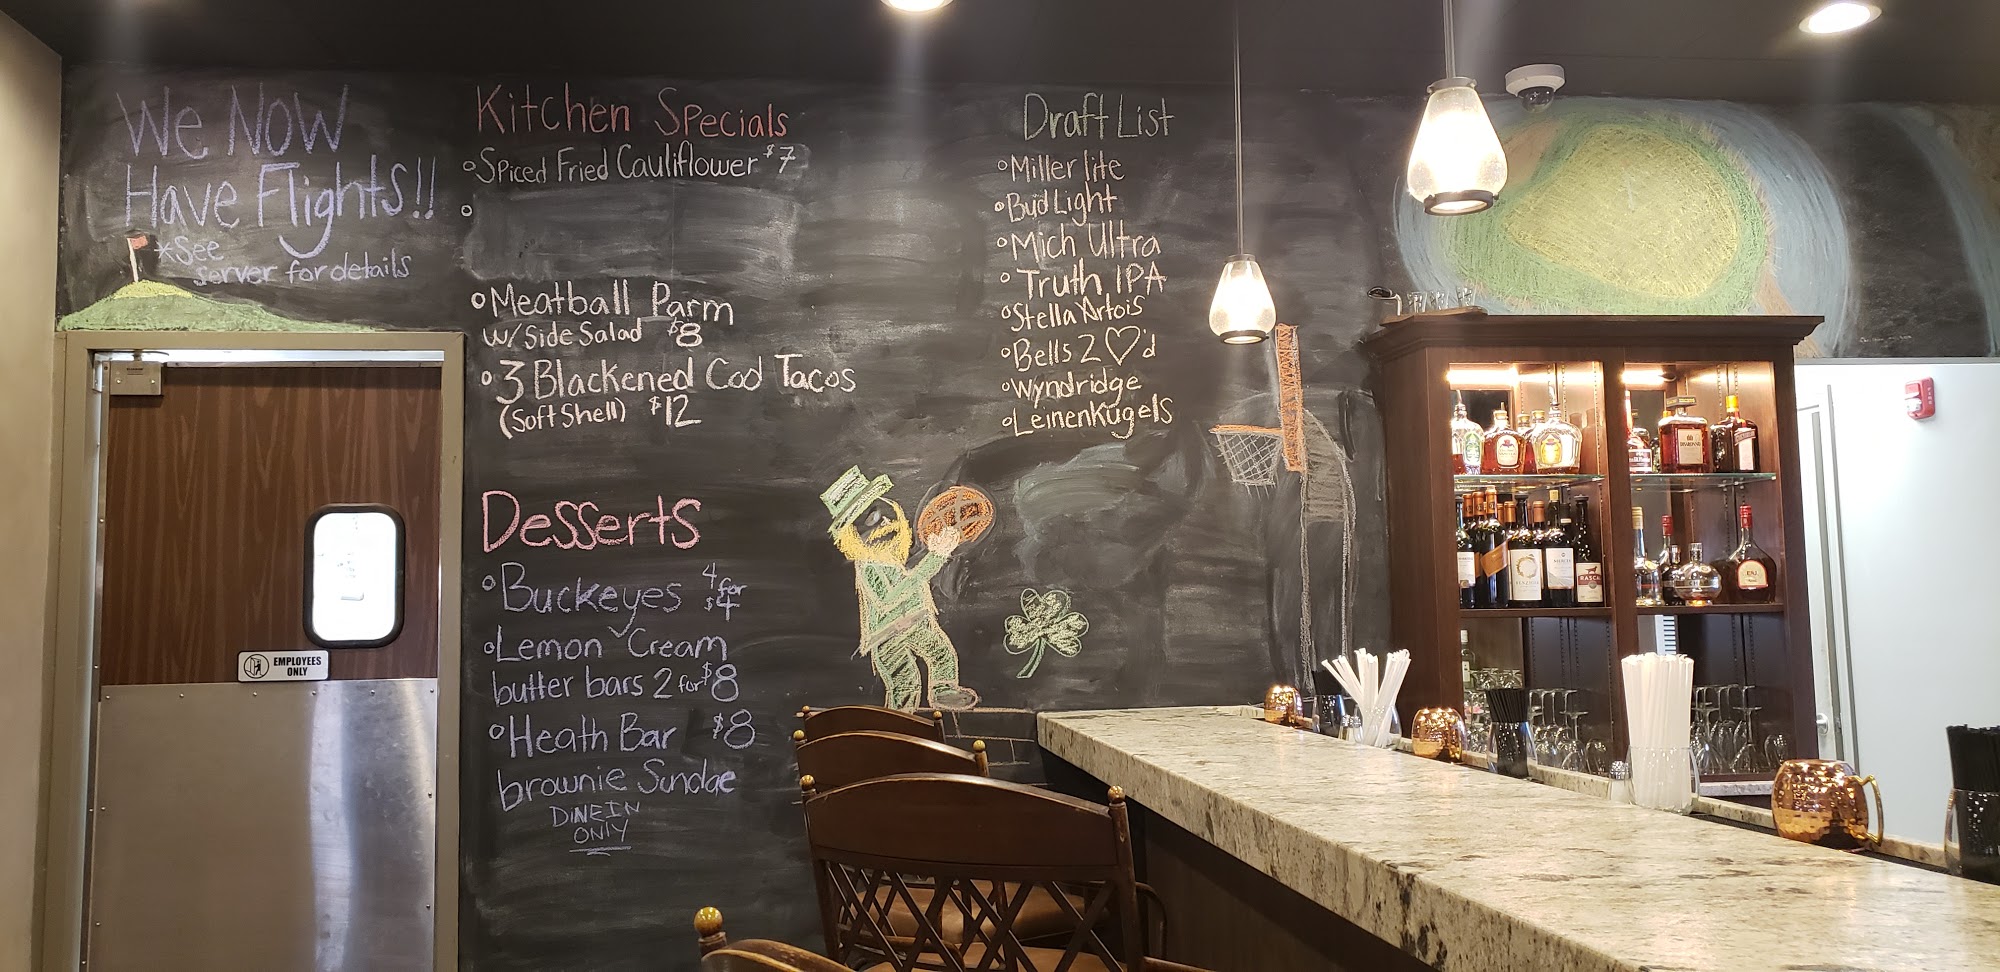 We Now
Have Flights!!
*See
server for details
Kitchen Specials
Spiced Fried Cauliflower $7
Meatball Parm
w/ Side Salad $8
3 Blackened Cod Tacos
(Soft Shell) $12
Desserts
Buckeyes 4 for $4
Lemon Cream
butter bars 2 for $8
Heath Bar $8
brownie Sundae
DINE IN
ONLY
Draft List
Miller lite
Bud Light
Mich Ultra
Truth IPA
Stella Artois
Bells 2 ♡'d
Wyndridge
Leinenkugels
EMPLOYEES
ONLY
DISARONNO
RASCAL